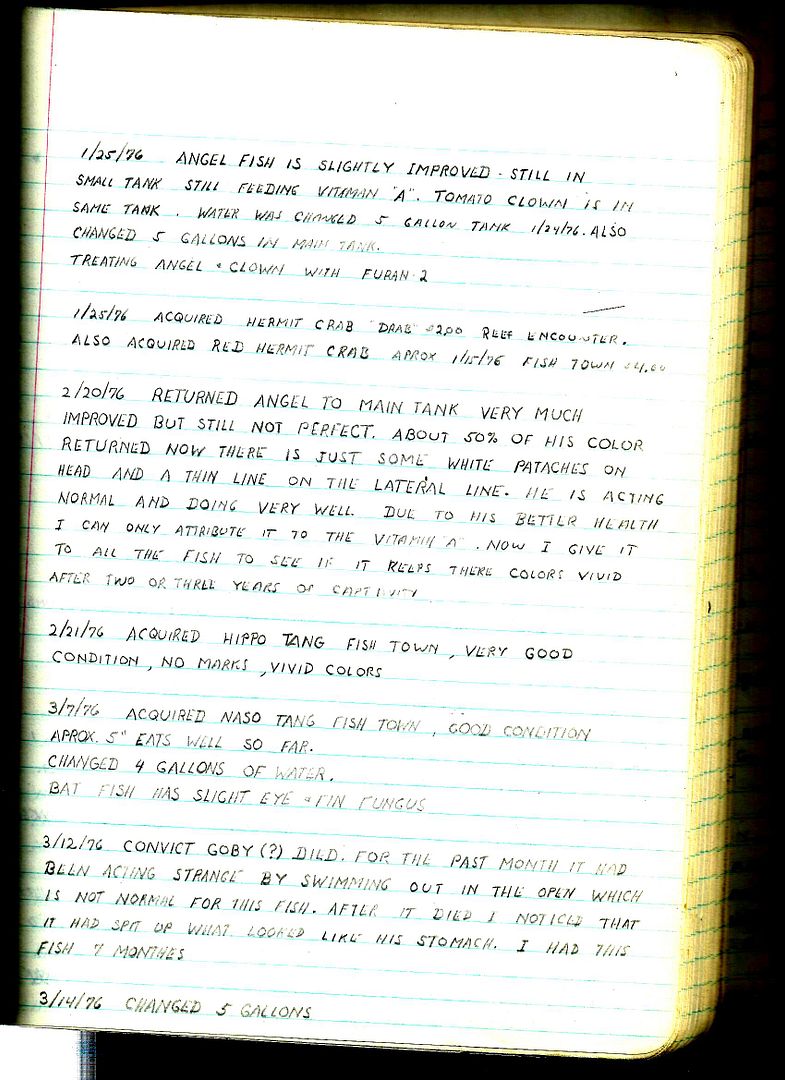 1/25/76 ANGEL FISH IS SLIGHTLY IMPROVED - STILL IN
SMALL TANK STILL FEEDING VITAMAN "A". TOMATO CLOWN IS IN
SAME TANK. WATER WAS CHANGED 5 GALLON TANK 1/24/76. ALSO
CHANGED 5 GALLONS IN MAIN TANK.
TREATING ANGEL & CLOWN WITH FURAN-2
1/25/76 ACQUIRED HERMIT CRAB "DRAB" $2.00 REEF ENCOUNTER.
ALSO ACQUIRED RED HERMIT CRAB APROX 1/15/76 FISH TOWN $4.00
2/20/76 RETURNED ANGEL TO MAIN TANK VERY MUCH
IMPROVED BUT STILL NOT PERFECT. ABOUT 50% OF HIS COLOR
RETURNED NOW THERE IS JUST SOME WHITE PATACHES ON
HEAD AND A THIN LINE ON THE LATERAL LINE. HE IS ACTING
NORMAL AND DOING VERY WELL. DUE TO HIS BETTER HEALTH
I CAN ONLY ATTRIBUTE IT TO THE VITAMIN "A". NOW I GIVE IT
TO ALL THE FISH TO SEE IF IT KEEPS THERE COLORS VIVID
AFTER TWO OR THREE YEARS OF CAPTIVITY
2/21/76 ACQUIRED HIPPO TANG FISH TOWN, VERY GOOD
CONDITION, NO MARKS, VIVID COLORS
3/7/76 ACQUIRED NASO TANG FISH TOWN, GOOD CONDITION
APROX. 5" EATS WELL SO FAR.
CHANGED 4 GALLONS OF WATER.
BAT FISH HAS SLIGHT EYE & FIN FUNGUS
3/12/76 CONVICT GOBY (?) DIED. FOR THE PAST MONTH IT HAD
BEEN ACTING STRANGE BY SWIMMING OUT IN THE OPEN WHICH
IS NOT NORMAL FOR THIS FISH. AFTER IT DIED I NOTICED THAT
IT HAD SPIT UP WHAT LOOKED LIKE HIS STOMACH. I HAD THIS
FISH 7 MONTHES
3/14/76 CHANGED 5 GALLONS